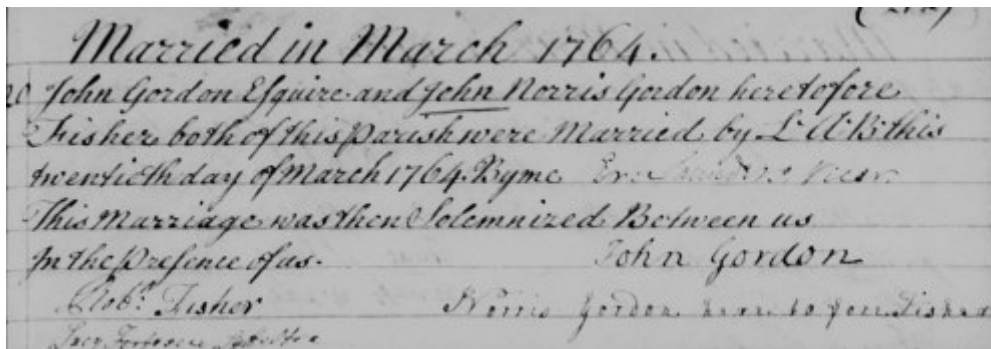 Married in March 1764.
20 John Gordon Esquire and John Norris Gordon heretofore
Fisher both of this Parish were Married by L: A: B: this
twentieth day of March 1764. By me
This Marriage was then Solemnized Between us
In the Presence of us. John Gordon
Robt. Fisher Norris Gordon here to fore Fisher